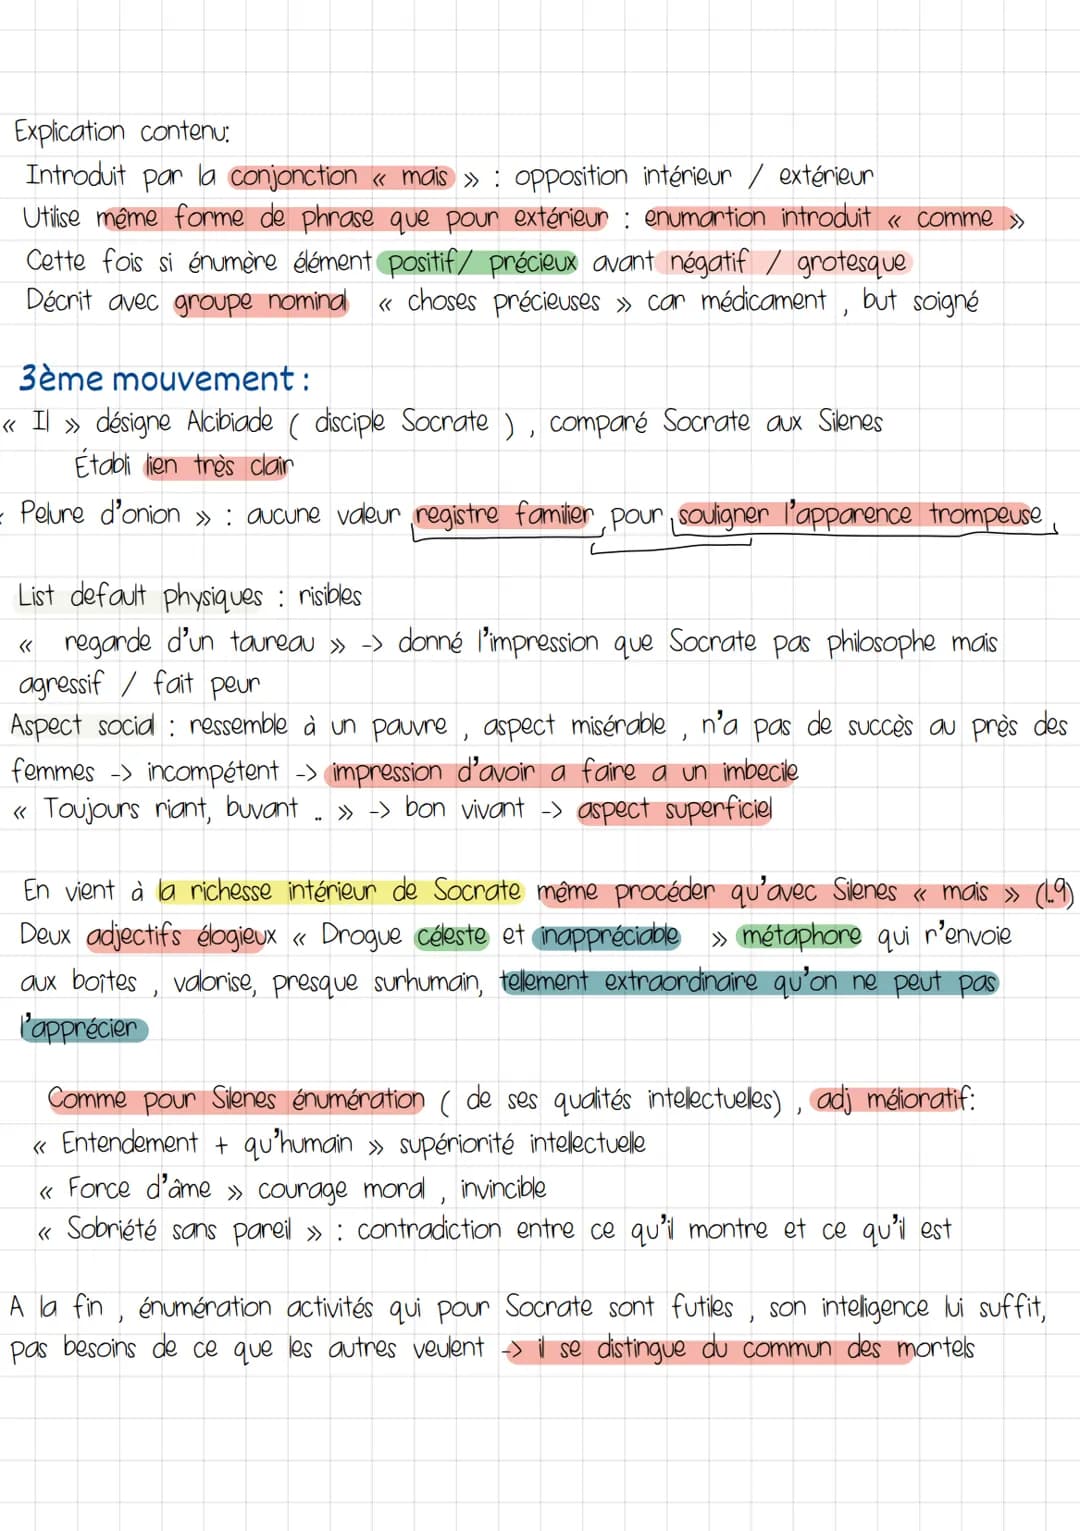 Explication contenu:
Introduit par la conjonction « mais » : opposition intérieur / extérieur
Utilise même forme de phrase que pour extérieur : enumartion introduit « comme »
Cette fois si énumère élément positif/ précieux avant négatif / grotesque
Décrit avec groupe nominal « choses précieuses » car médicament , but soigné
3ème mouvement :
« Il » désigne Alcibiade ( disciple Socrate ) , comparé Socrate aux Silenes
Établi lien très clair
« Pelure d'onion » : aucune valeur registre familier pour souligner l'apparence trompeuse
List default physiques : risibles
« regarde d'un taureau » -> donné l'impression que Socrate pas philosophe mais
agressif / fait peur
Aspect social : ressemble à un pauvre , aspect misérable , n'a pas de succès au près des
femmes -> incompétent -> impression d'avoir a faire a un imbecile
« Toujours riant, buvant .. » -> bon vivant -> aspect superficiel
En vient à la richesse intérieur de Socrate même procéder qu'avec Silenes « mais » (l.9)
Deux adjectifs élogieux « Drogue céleste et inappréciable » métaphore qui r'envoie
aux boîtes , valorise, presque surhumain, tellement extraordinaire qu'on ne peut pas
l'apprécier
Comme pour Silenes énumération ( de ses qualités intellectueles) , adj mélioratif:
« Entendement + qu'humain » supériorité intellectuelle
« Force d'âme » courage moral , invincible
« Sobriété sans pareil » : contradiction entre ce qu'il montre et ce qu'il est
A la fin , énumération activités qui pour Socrate sont futiles , son inteligence lui suffit,
pas besoins de ce que les autres veulent -> il se distingue du commun des mortels